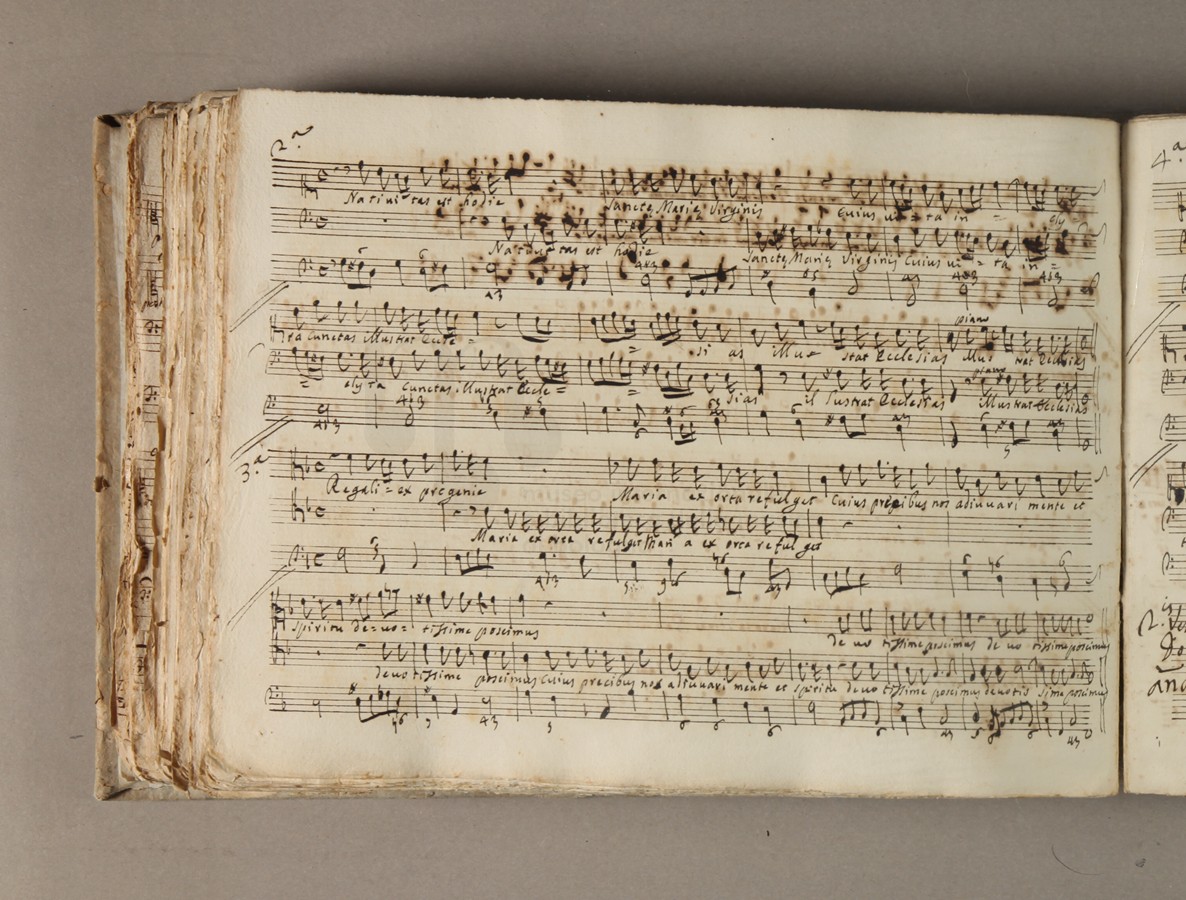 2.a
Nativi-tas est hodie Sanctę Marię Virginis Cuius vi = ta in = cly
Nativi-tas est hodie Sanctę Marię Virginis Cuius vi = ta in =
piano
ra cunctas illustrat Eccle = si as Illu strat Ecclesias Illus trat Ecclesias
piano
cly ta cunctas illustrat Eccle = sias il lustrat Ecclesias Illustrat Ecclesias
3.a
Regali = ex progenie Maria ex orta refulget Cuius precibus nos adiuvari mente et
Maria ex orta refulget Mari a ex orta reful get
spiritu de = vo = tissime poscimus de vo tissime poscimus de vo tissime poscimus
devotissime poscimus Cuius precibus nos adiuvari mente et spiritu devo tissime poscimus devotis sime poscimus
4.a
2.